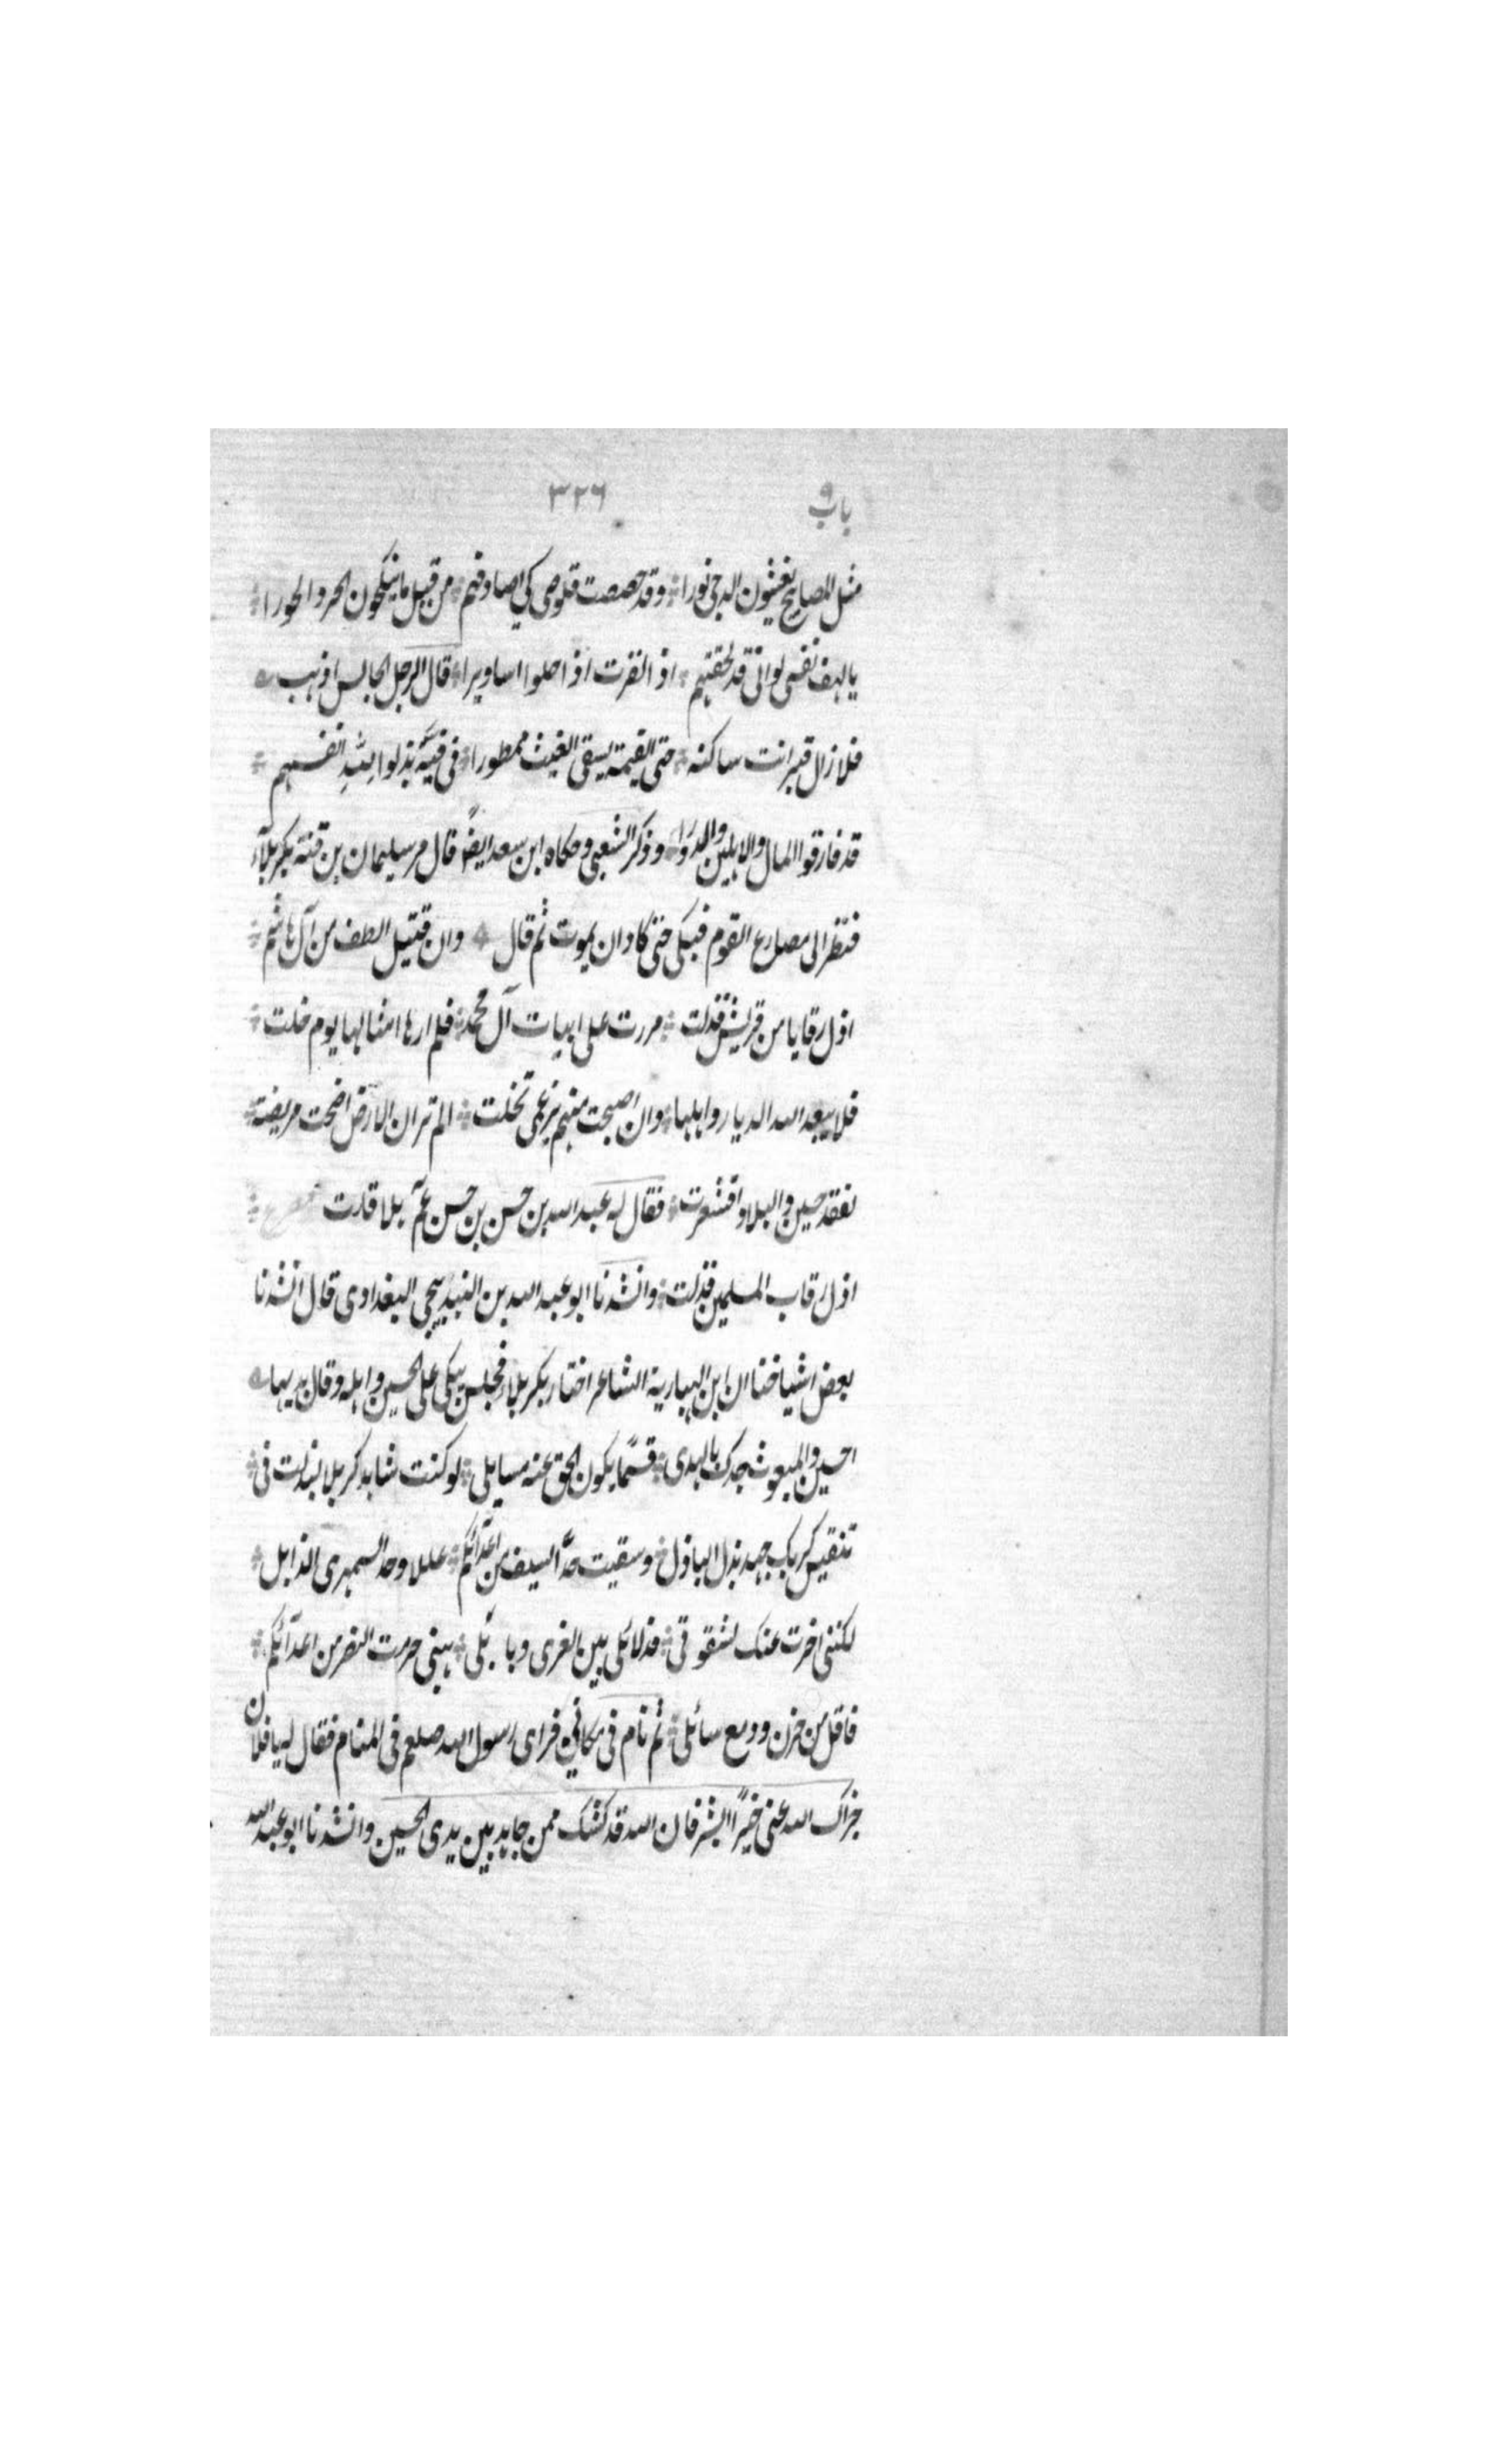 باب ٩ ٣٢٦
مثل المصابیح یغشون الدجی نورا وقد حصصت قلوصی کی اصادفهم من قبل ما ینکحون الحرد الحورا
یالهف نفسی لوانی قد لحقتهم اذا نفرت اذ احلوا اساویرا قال الرجل الجالس اذهب
فلا زال قبر انت ساکنه حتی القیمة یسقی الغیث ممطورا فی فتیة بذلوا لله انفسهم
قد فارقوا المال والاهلین والدورا وذکر الشعبی وحکاه ابن سعد ایضًا قال مر سلیمان بن قتة بکربلآء
فنظر الی مصارع القوم فبکی حتی کاد ان یموت ثم قال وان قتیل الطف من آل هاشم
اذل رقابا من قریش فذلت مررت علی ابیات آل محمد فلم ارها امثالها یوم خلت
فلا یبعد الله الدیار واهلها وان اصبحت منهم برغمی تخلت الم تر ان الارض اضحت مریضة
لفقد حسین والبلاد اقشعرت فقال له عبد الله بن حسن بن حسن عم هلا قلت
اذل رقاب المسلمین فذلت وانشدنا ابو عبد الله بن البندیسیجی البغدادی قال انشدنا
بعض اشیاخنا ان ابن الهباریة الشاعر اختار بکربلاء فجلس یبکی علی الحسین واهله وقال بدیها
احسین والمبعوث جدک بالهدی قسمًا یکون الحق عنه مسایلی لو کنت شاهد کربلا لبذلت فی
تنفیس کربک جهد بذل الباذل وسقیت حدّ السیف من اعدآئکم عللا وحد السمهری الذابل
لکننی اخرت عنک لشقوتی فبلائلی بین الغری وبابلی هبنی حرمت النصر من اعدآئکم
فاقل من حزن ودمع سائلی ثم نام فی مکانه فرای رسول الله صلعم فی المنام فقال له یا فلان
جزاک الله عنی خیرًا ابشر فان الله قد کتبک ممن جاهد بین یدی الحسین وانشدنا ابو عبد الله